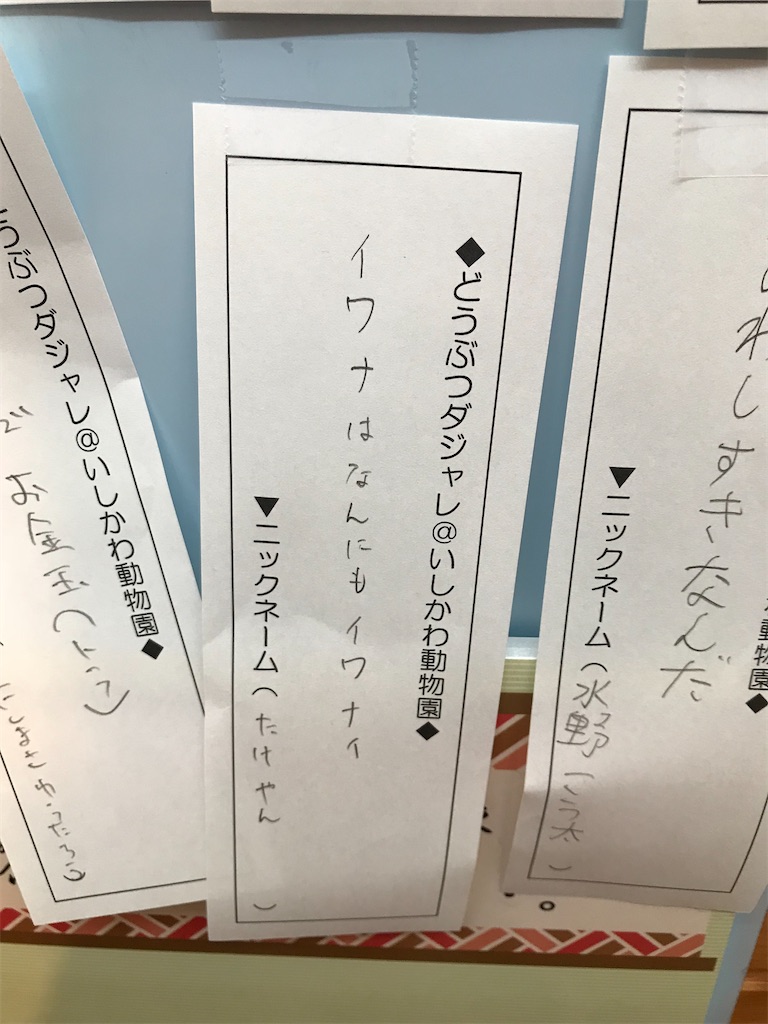 わしすきなんだ
▼ニックネーム(水野こう太)
動物園◆
◆どうぶつダジャレ@いしかわ動物園◆
イワナはなんにもイワナイ
▼ニックネーム(たけやん)
うぶつダジャレ@いしかわ動物園◆
で お金玉(とって)